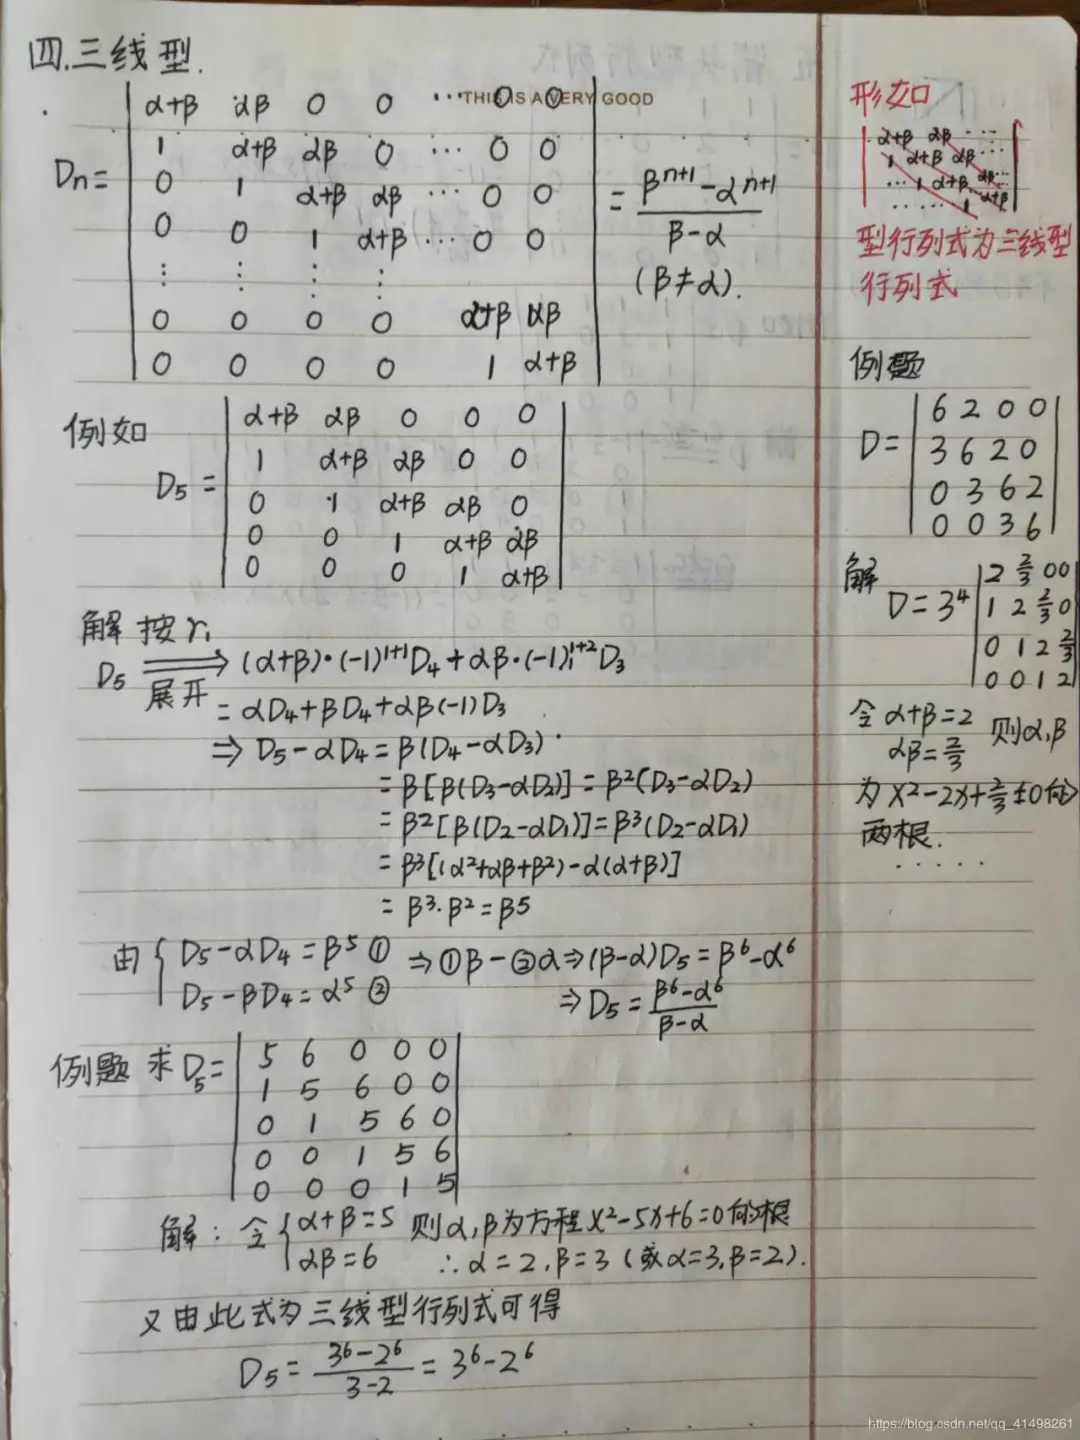 四.三线型.
THIS IS A VERY GOOD
Dn=
α+β αβ 0 0 ⋯ 0 0
1 α+β αβ 0 ⋯ 0 0
0 1 α+β αβ ⋯ 0 0
0 0 1 α+β ⋯ 0 0
⋮ ⋮ ⋮ ⋮
0 0 0 0 α+β αβ
0 0 0 0 1 α+β
= (β^(n+1)-α^(n+1))/(β-α)
(β≠α).
例如
D₅=
α+β αβ 0 0 0
1 α+β αβ 0 0
0 1 α+β αβ 0
0 0 1 α+β αβ
0 0 0 1 α+β
解 按r₁
展开
D₅ ⟹ (α+β)·(-1)^(1+1)D₄+αβ·(-1)^(1+2)D₃
=αD₄+βD₄+αβ(-1)D₃
⇒ D₅-αD₄=β(D₄-αD₃)
=β[β(D₃-αD₂)]=β²(D₃-αD₂)
=β²[β(D₂-αD₁)]=β³(D₂-αD₁)
=β³[(α²+αβ+β²)-α(α+β)]
=β³·β²=β⁵
由{D₅-αD₄=β⁵① ⇒①β-②α⇒(β-α)D₅=β⁶-α⁶
D₅-βD₄=α⁵② ⇒D₅=(β⁶-α⁶)/(β-α)
例题 求D₅=
5 6 0 0 0
1 5 6 0 0
0 1 5 6 0
0 0 1 5 6
0 0 0 1 5
解：令{α+β=5 则α,β为方程x²-5x+6=0的根
αβ=6 ∴α=2,β=3(或α=3,β=2).
又由此式为三线型行列式可得
D₅=(3⁶-2⁶)/(3-2)=3⁶-2⁶
形如
α+β αβ ⋯
1 α+β αβ ⋯
⋯ 1 α+β αβ⋯
⋯⋯ 1 α+β
型行列式为三线型
行列式
例题
D=
6 2 0 0
3 6 2 0
0 3 6 2
0 0 3 6
解
D=3⁴
2 2/3 0 0
1 2 2/3 0
0 1 2 2/3
0 0 1 2
令α+β=2 则α,β
αβ=2/3
为x²-2x+2/3=0的
两根.
·····
https://blog.csdn.net/qq_41498261